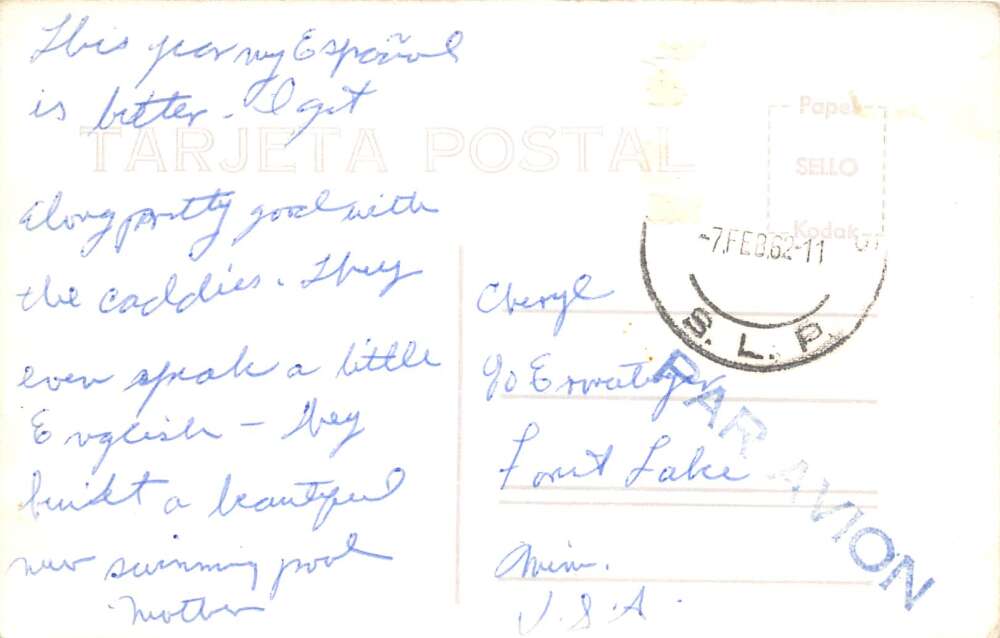 This year my Español
is better - I get
TARJETA POSTAL
along pretty good with
the caddies. They
even speak a little
English - they
built a beautiful
new swimming pool
Mother
Papel
SELLO
Kodak
-7.FEB.62-11
S. L. P.
PAR AVION
Cheryl
c/o
Forest Lake
Minn.
U.S.A.